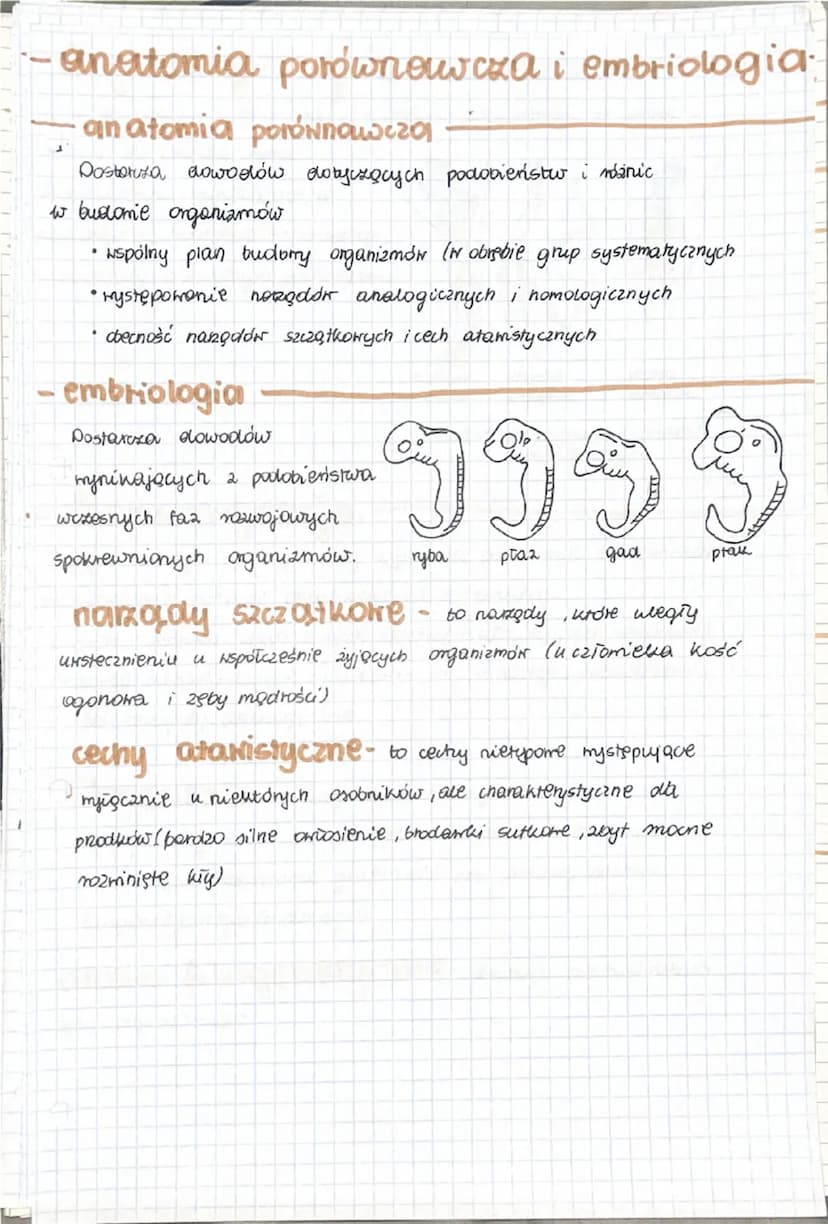 - anatomia porównawcza i embriologia -
- anatomia porównawcza
Dostarcza dowodów dotyczących podobieństw i różnic
w budowie organizmów
• wspólny plan budowy organizmów (w obrębie grup systematycznych
• występowanie narządów analogicznych i homologicznych
• obecność narządów szczątkowych i cech atawistycznych
- embriologia
Dostarcza dowodów
wynikających z podobieństwa
wczesnych faz rozwojowych
spokrewnionych organizmów.
ryba płaz gad ptak
narządy szczątkowe - to narządy, które uległy
uwstecznieniu u współcześnie żyjących organizmów (u człowieka kość
ogonowa i zęby mądrości)
cechy atawistyczne - to cechy nietypowe występujące
wyjącznie u niektórych osobników, ale charakterystyczne dla
przodków (bardzo silne owłosienie, brodawki sutkowe, zbyt mocne
rozwinięte kły)